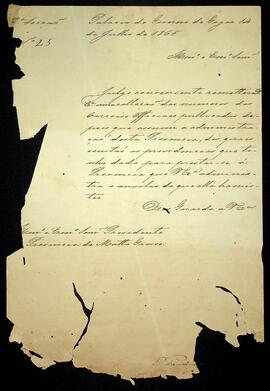 2ª Secção
Nº 25
Palacio do Governo de Goyaz 14
de Julho de 1865
Illmº e Exmº Senr
Julgo conveniente remetter a V.
Exª uma collecção dos numeros do
Correio Official publicados de-
pois que assumi a administra-
ção desta Provincia, dos quaes
constão as providencias que te-
nho dado para prestar-se á
Provincia que V Exª adminis-
tra o auxilio de que ella ha mis-
ter.
Deos Guarde a V Exª
Illmº e Exmº Senr Presidente
Provincia de Matto Grosso